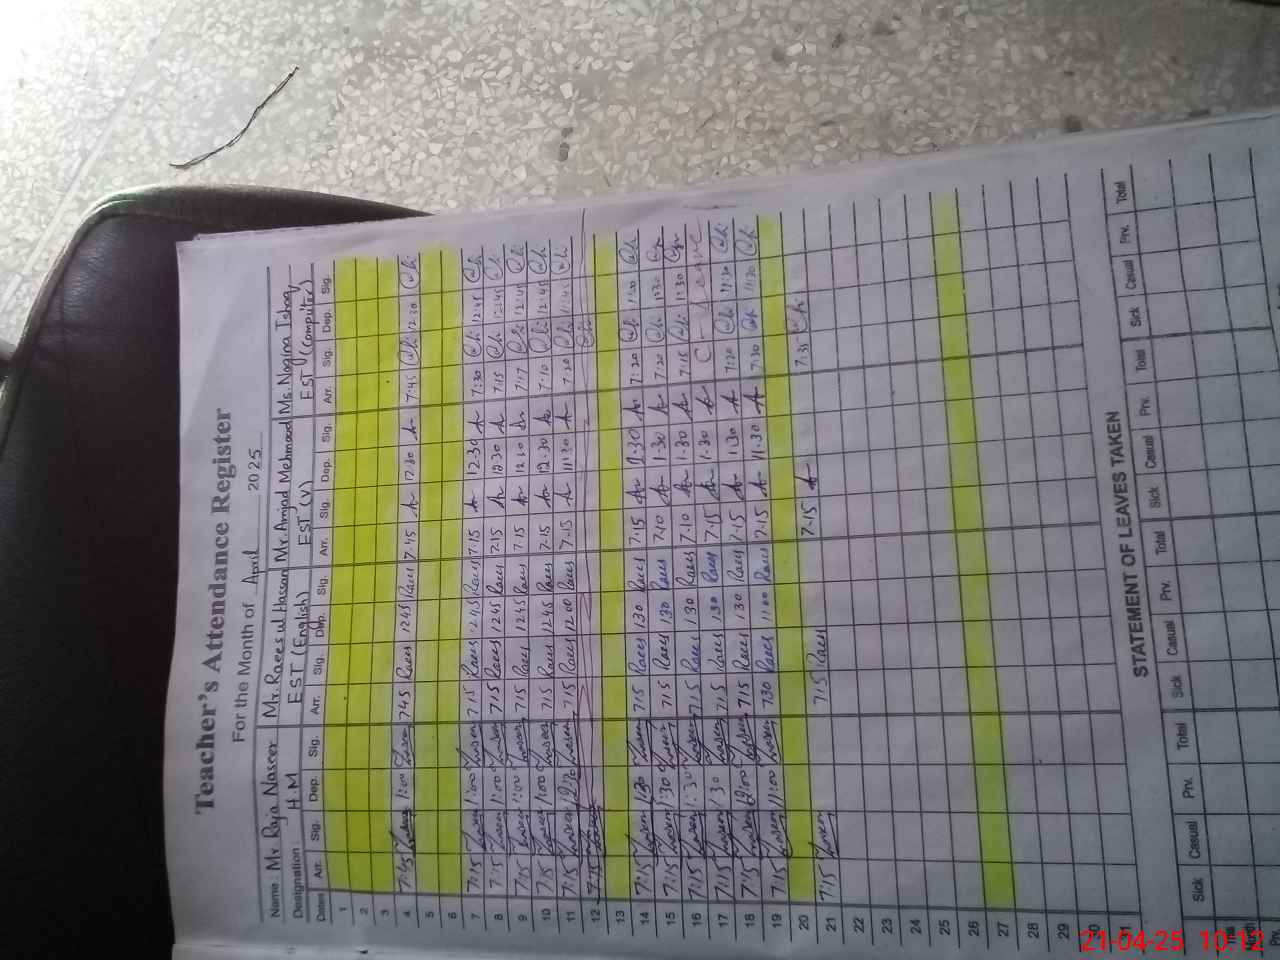 Teacher's Attendance Register
For the Month of April 2025
Name: Mr Raja Naseer Mr. Raees ul Hassan Mr. Amjad Mehmood Ms. Nagina Ishaq
Designation: H.M EST (English) EST (V) EST (Computer)
Dates Arr. Sig. Dep. Sig. Arr. Sig. Dep. Sig. Arr. Sig. Dep. Sig. Arr. Sig. Dep. Sig.
1
2
3
4 7:45 1:00 745 Raees 1245 Raees 7.45 12.30 7:45 12:30
5
6
7 7:15 1:00 715 Raees 1245 Raees 7.15 12.30 7:30 12:45
8 7:15 1:00 715 Raees 1245 Raees 7.15 12.30 7:15 12:45
9 7:15 1:00 715 Raees 1245 Raees 7.15 12.30 7:17 12:45
10 7:15 1:00 715 Raees 1245 Raees 7.15 12.30 7:10 12:45
11 7:15 12:30 715 Raees 1200 Raees 7.15 11.30 7:20 11:45
12 7:15
13
14 7:15 1:30 715 Raees 130 Raees 7.15 1.30 7:20 1:30
15 7:15 1:30 715 Raees 130 Raees 7.10 1.30 7:20 1:30
16 7:15 1:30 715 Raees 130 Raees 7.10 1.30 7:15 1:30
17 7:15 1:30 715 Raees 130 Raees 7.15 1.30 C - Leave
18 7:15 12:00 715 Raees 130 Raees 7.15 1.30 7:20
19 7:15 11:00 730 Raees 1100 Raees 7.15 11.30 7:30 11:30
20
21 7:15 715 Raees 7.15 7:35
22
23
24
25
26
27
28
29
30
31
STATEMENT OF LEAVES TAKEN
Sick Casual Prv. Total Sick Casual Prv. Total Sick Casual Prv. Total Sick Casual Prv. Total
21-04-25 10:12